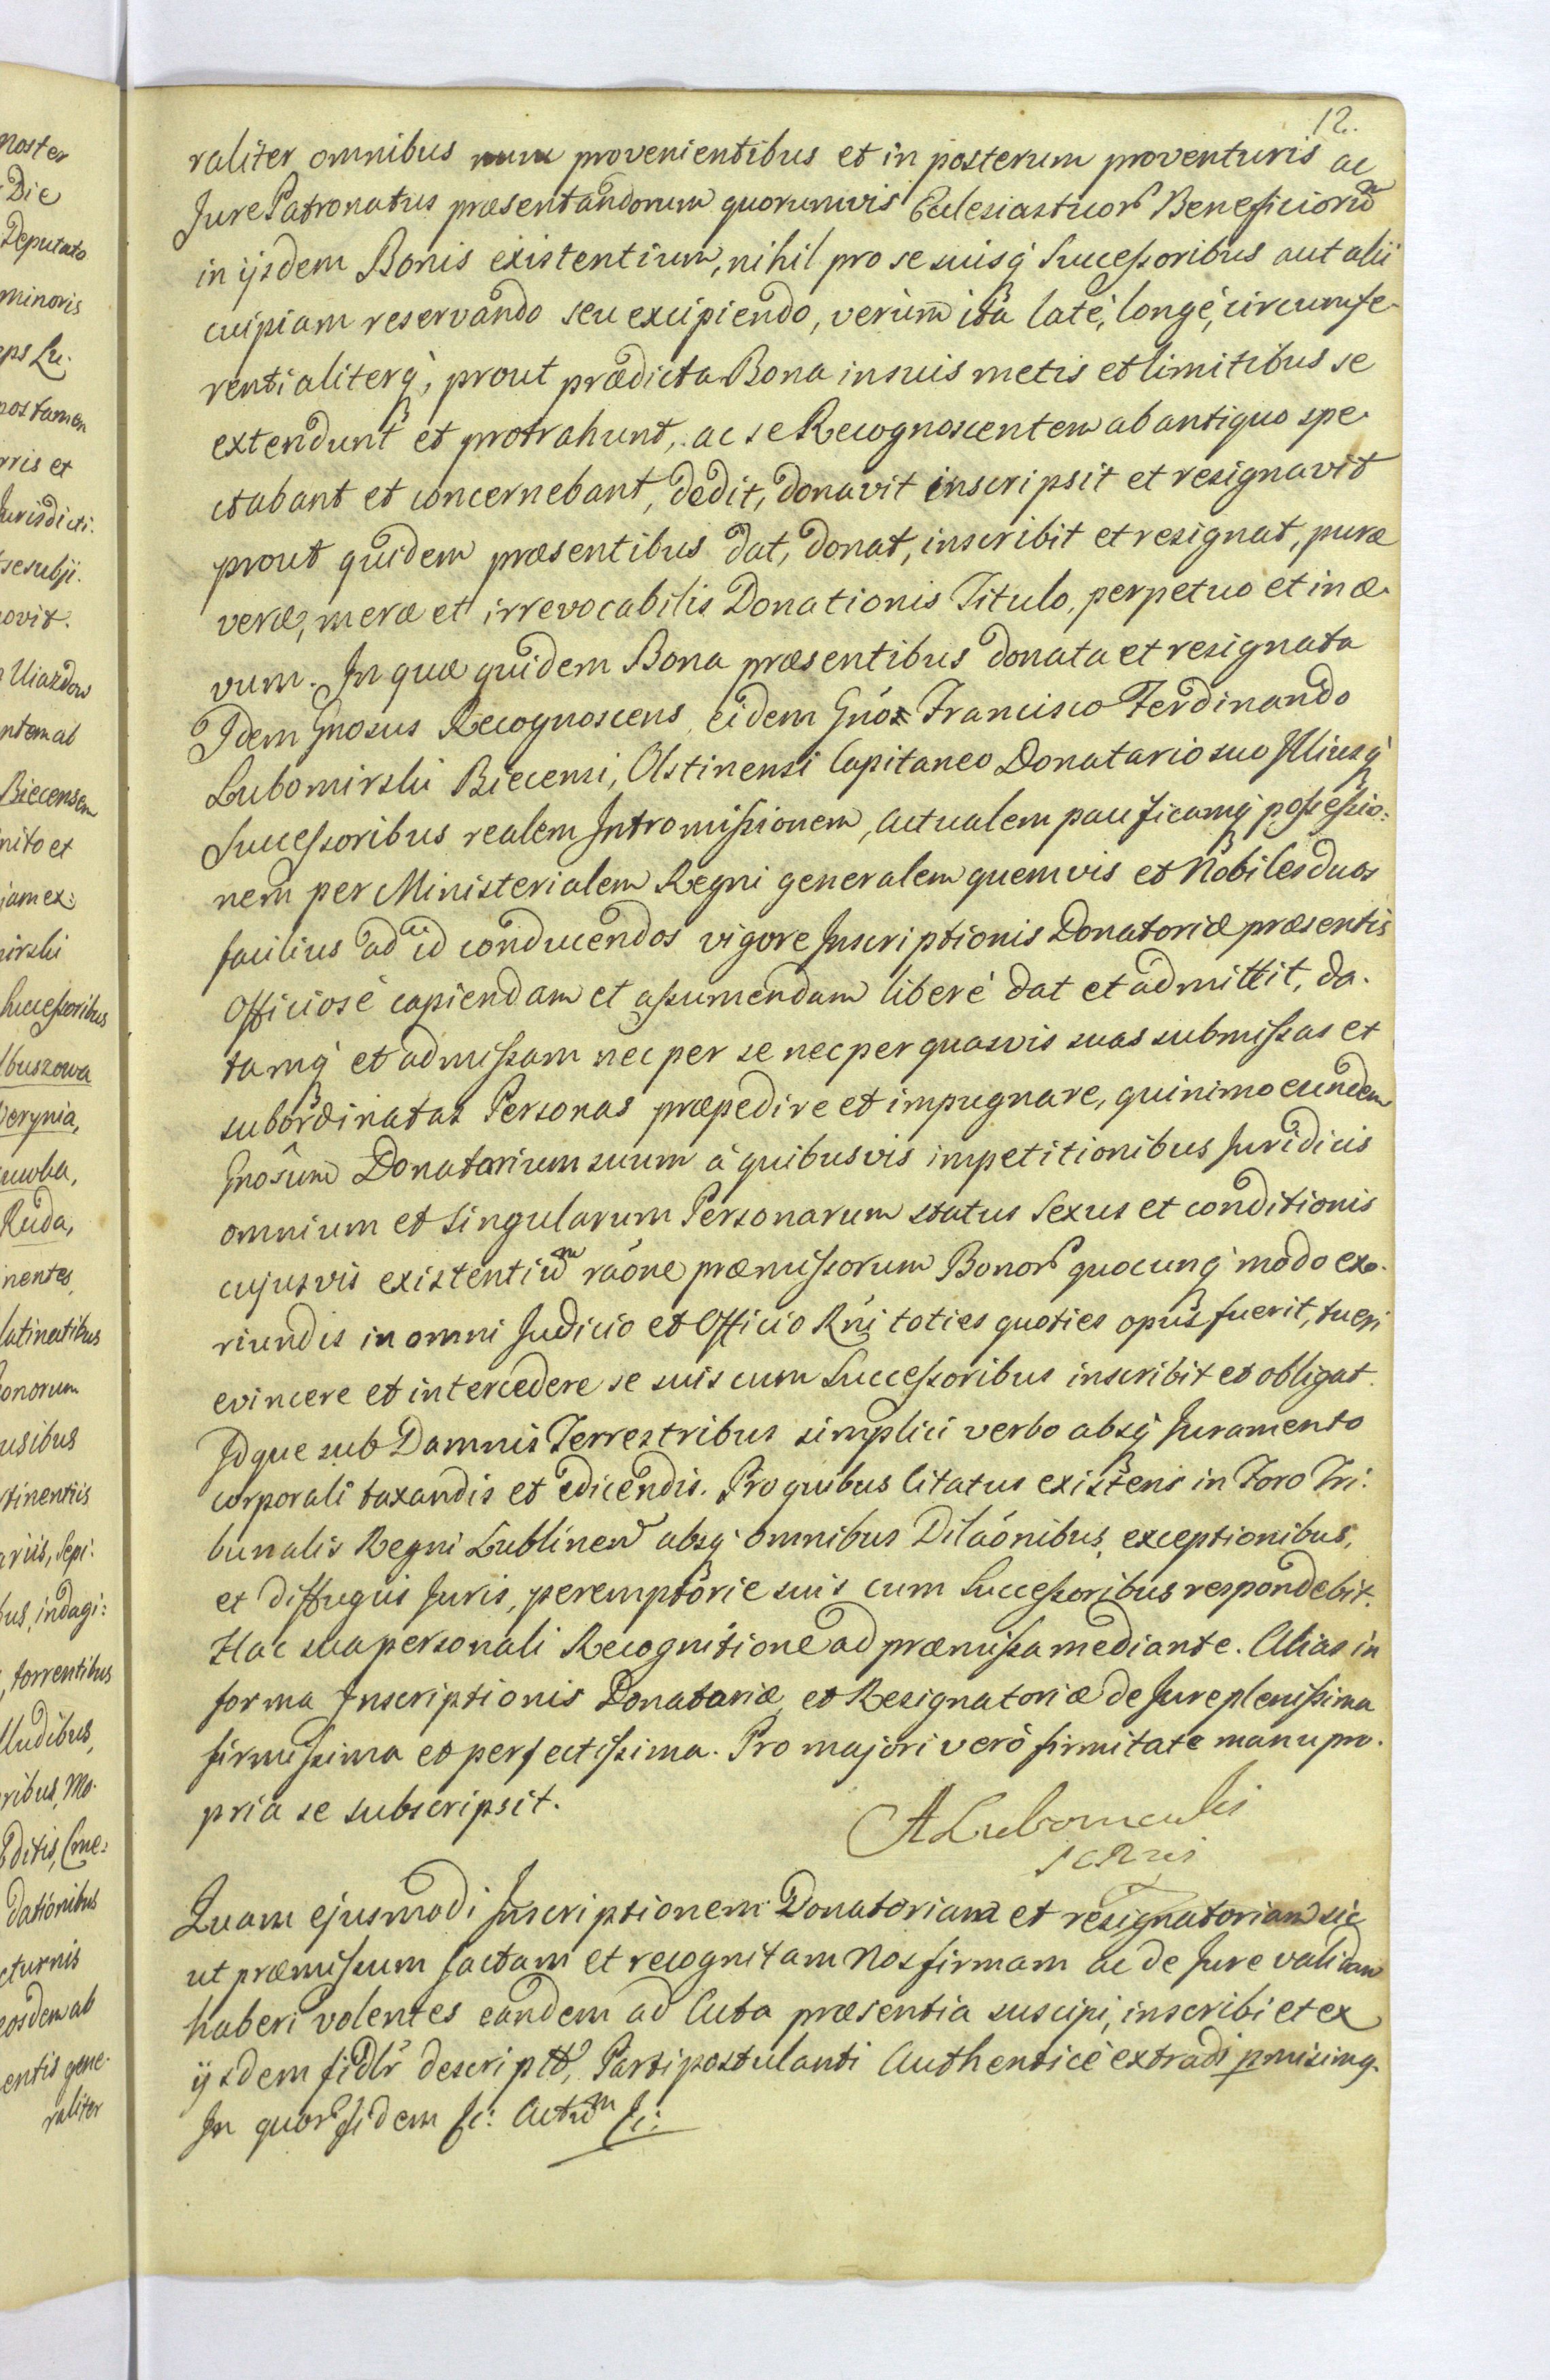 noster
Die
Deputato
minoris
eps Lu.
nostamen
rris et
Jurisdicti.
se subji.
ovit.
Uiazdow
ntem ab
Biecensem
nito et
jam ex:
irski
Successoribus
lbuszowa
Werynia,
Ruda,
nentes,
latinatibus
onorum
usibus
rtinentiis
ariis, Sepi:
bus, indagi:
, torrentibus
lludibus,
ribus, Mo.
ditis, Cme:
dationibus
cturnis
eosdem ab
entis gene.
raliter
12.
raliter omnibus nunc provenientibus et in posterum proventuris ac
Jure Patronatus præsentandorum quorumvis Ecclesiasticor Beneficiorum
in ijsdem Bonis existentium, nihil pro se suisq Successoribus aut alii
cuipiam reservando seu excipiendo, verùm ita laté, longé, circumfe-
rentialiterq, prout prædicta Bona in suis metis et limitibus se
extendunt et protrahunt, ac se Recognoscentem ab antiquo spe-
ctabant et concernebant, dedit, donavit inscripsit et resignavit
prout quidem præsentibus dat, donat, inscribit et resignat, puræ
veræ, meræ et irrevocabilis Donationis Titulo, perpetuo et in æ-
vum. In quæ quidem Bona præsentibus donata et resignata
Idem Gnosus Recognoscens, eidem Gnóso Francisco Ferdinando
Lubomirski Biecensi, Olstinensi Capitaneo Donatario suo Illiusq
Successoribus realem Intromissionem, actualem pacificamq possessio:
nem per Ministerialem Regni generalem quemvis et Nobiles duos
facilius ad id conducendos vigore Inscriptionis Donatoriæ præsentis
Officiosé capiendam et assumendam liberé dat et admittit, da-
tamq et admissam nec per se nec per quasvis suas submissas et
subordinatas Personas præpedire et impugnare, quinimo eundem
Gnosum Donatarium suum à quibusvis impetitionibus Juridicis
omnium et singularum Personarum status Sexus et conditionis
cujusvis existentium raóne præmissorum Bonor quocunq modo exo-
riundis in omni Judicio et Officio Rni toties quoties opus fuerit, tueri
evincere et intercedere se suis cum Successoribus inscribit et obligat.
Idque sub Damnis Terrestribus simplici verbo absq Juramento
corporali taxandis et edicendis. Pro quibus Citatus existens in Foro Tri:
bunalis Regni Lublinen absq omnibus Dilaónibus, exceptionibus,
et diffugiis Juris, peremptorie suis cum Successoribus respondebit.
Hac sua personali Recognitione ad præmissa mediante. Alias in
forma Inscriptionis Donatariæ et Resignatoriæ de Jure plenissima
firmissima et perfectissima. Pro majori veró firmitate manu pro-
pria se subscripsit.
A Lubomirski
Quam ejusmodi Inscriptionem Donatoriam et resignatoriam sic
ut præmissum factam et recognitam Nos firmam ac de Jure validam
haberi volentes eandem ad Acta præsentia suscipi, inscribi et ex
ijsdem fidlr descriptã, Parti postulanti Authenticé extradi pmisimq.
In quor fidem &c: Actum &c: